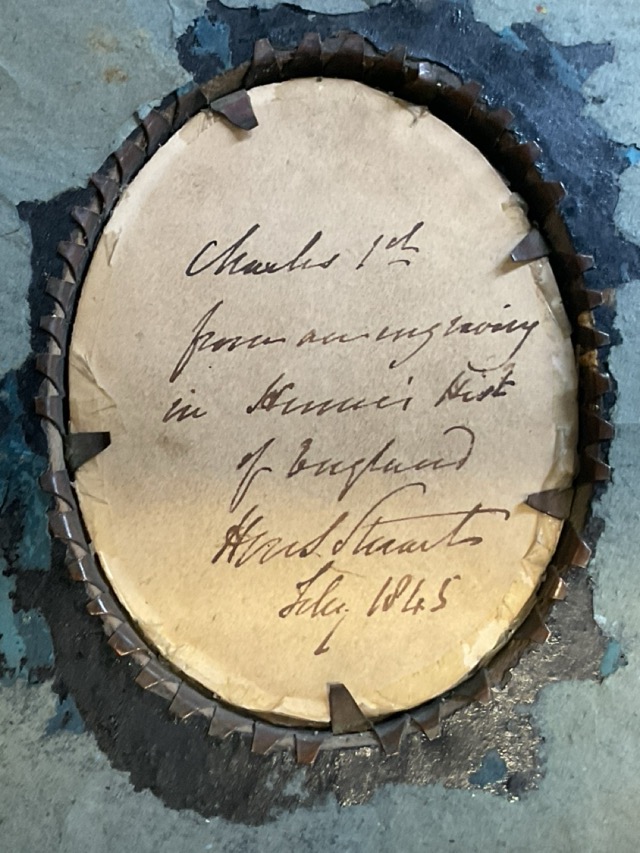 Charles 1st
from an engraving
in Hume's Hist
of England
Stuart
July 1845